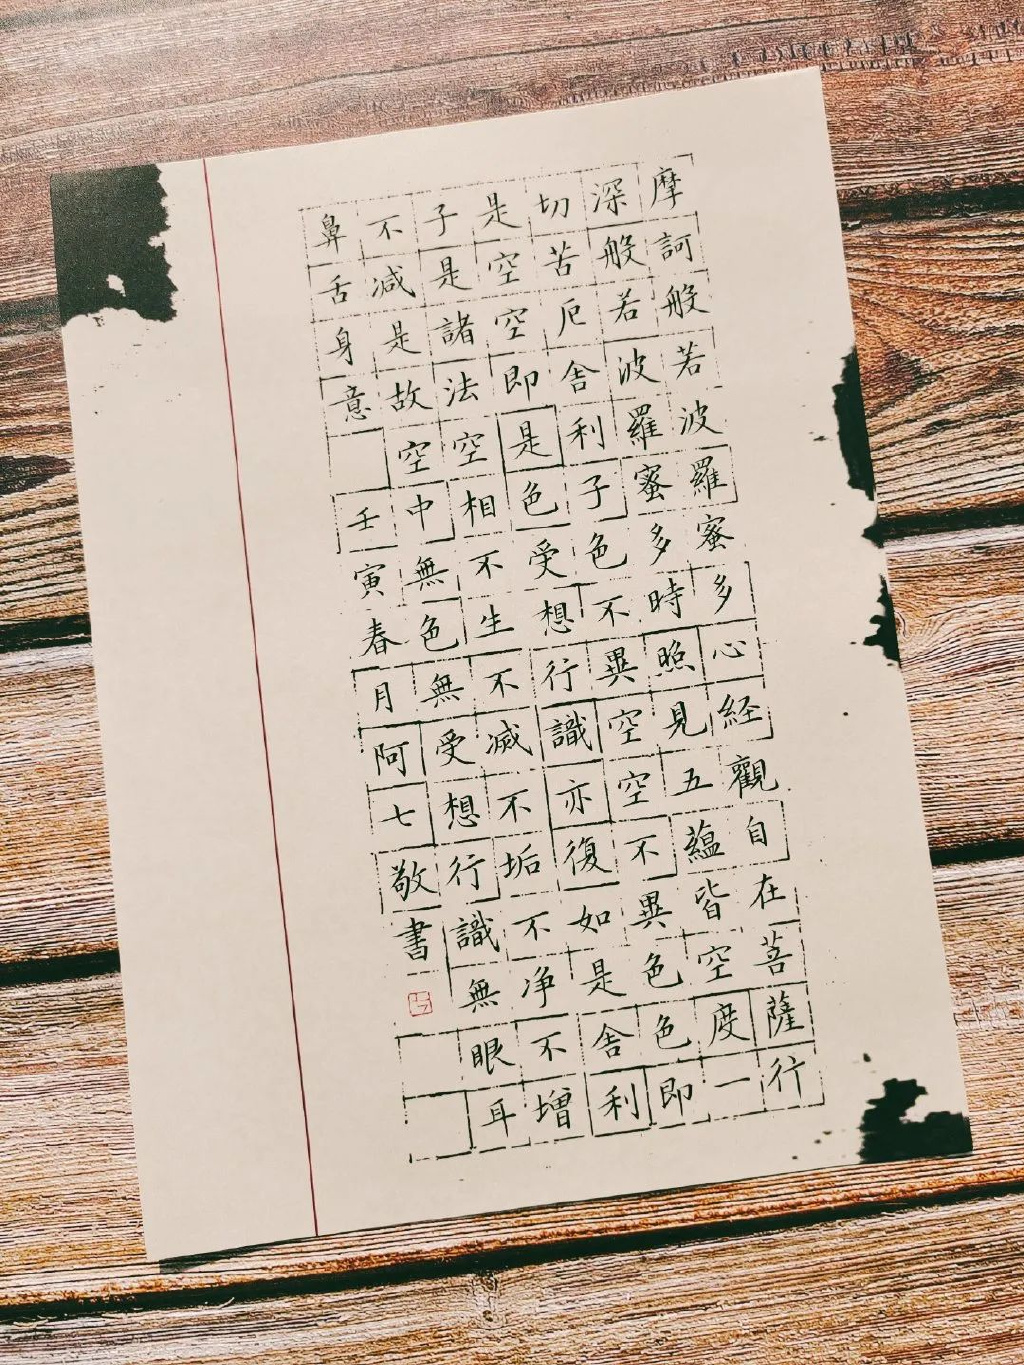 摩訶般若波羅蜜多心経觀自在菩薩行
深般若波羅蜜多時照見五蘊皆空度一
切苦厄舎利子色不異空空不異色色即
是空空即是色受想行識亦復如是舎利
子是諸法空相不生不滅不垢不净不增
不减是故空中無色無受想行識無眼耳
鼻舌身意
壬寅春月阿七敬書